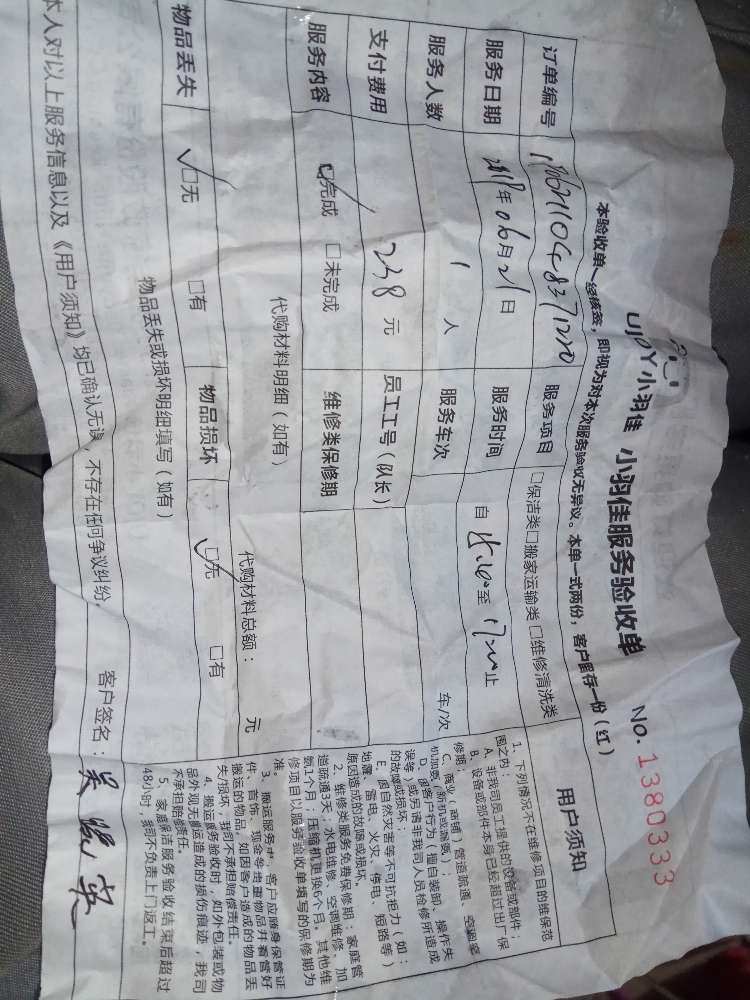 UJOY小羽佳 小羽佳服务验收单 No. 1380333
本验收单一经核签，即视为对本次服务验收无异议。本单一式两份，客户留存一份（红）
订单编号 服务项目 □保洁类□搬家运输类□维修清洗类
服务日期 2018年06月21日 服务时间 自 至 止
服务人数 1 人 服务车次 车/次
支付费用 238 元 员工工号（队长）
服务内容 ☑完成 □未完成 维修类保修期
代购材料明细（如有） 代购材料总额： 元
物品丢失 ☑无 □有 物品损坏 ☑无 □有
物品丢失或损坏明细填写（如有）
本人对以上服务信息以及《用户须知》均已确认无误，不存在任何争议纠纷。 客户签名：
用户须知
1、下列情况不在维修项目的维保范
围之内：
A、非我司员工提供的设备或部件；
B、设备或部件本身已经超过出厂保
修期；
C、商业（商铺）管道疏通、空调
机加氨（新机或漏氨）；
D、因客户行为（擅自装卸、操作失
误等）或另请非我司人员检修所造成
的故障或损坏；
E、因自然灾害等不可抗拒力（如：
地震、雷电、火灾、停电、短路等）
原因造成的故障或损坏。
2、维修类服务免费保修期：家庭管
道疏通3天；水电维修、空调维修、加
氨1个月；压缩机更换6个月。其他维
修项目以服务验收单填写的保修期为
准。
3、搬运服务中，客户应随身保管证
件、首饰、现金等贵重物品并看管好
搬运的物品。如因客户造成的物品丢
失/损坏，我司不承担赔偿责任。
4、搬运服务验收时，如外包装或物
品外观无搬运造成的损伤痕迹，我司
不承担赔偿责任。
5、家庭保洁服务验收结束后超过
48小时，我司不负责上门返工。